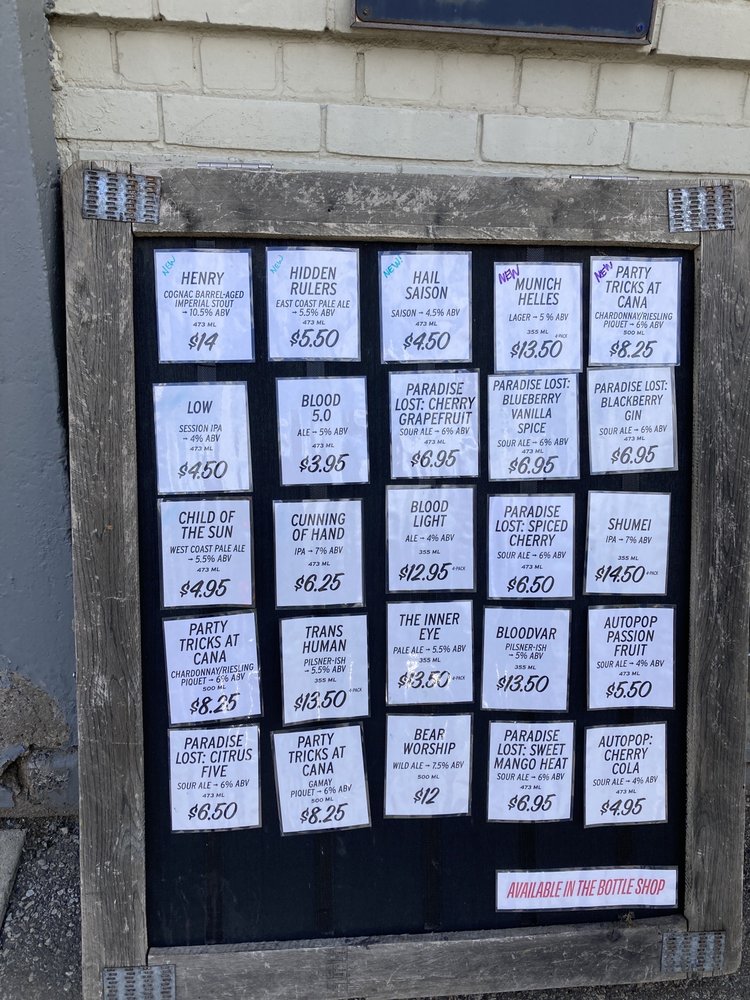 NEW
HENRY
COGNAC BARREL-AGED
IMPERIAL STOUT
→ 10.5% ABV
473 ML
$14
NEW
HIDDEN
RULERS
EAST COAST PALE ALE
→ 5.5% ABV
473 ML
$5.50
NEW!
HAIL
SAISON
SAISON → 4.5% ABV
473 ML
$4.50
NEW
MUNICH
HELLES
LAGER → 5 % ABV
355 ML
$13.50 4-PACK
NEW
PARTY
TRICKS AT
CANA
CHARDONNAY/RIESLING
PIQUET → 6% ABV
500 ML
$8.25
LOW
SESSION IPA
→ 4% ABV
473 ML
$4.50
BLOOD
5.0
ALE → 5% ABV
473 ML
$3.95
PARADISE
LOST: CHERRY
GRAPEFRUIT
SOUR ALE → 6% ABV
473 ML
$6.95
PARADISE LOST:
BLUEBERRY
VANILLA
SPICE
SOUR ALE → 6% ABV
473 ML
$6.95
PARADISE LOST:
BLACKBERRY
GIN
SOUR ALE → 6% ABV
473 ML
$6.95
CHILD OF
THE SUN
WEST COAST PALE ALE
→ 5.5% ABV
473 ML
$4.95
CUNNING
OF HAND
IPA → 7% ABV
473 ML
$6.25
BLOOD
LIGHT
ALE → 4% ABV
355 ML
$12.95 4-PACK
PARADISE
LOST: SPICED
CHERRY
SOUR ALE → 6% ABV
473 ML
$6.50
SHUMEI
IPA → 7% ABV
355 ML
$14.50 4-PACK
PARTY
TRICKS AT
CANA
CHARDONNAY/RIESLING
PIQUET → 6% ABV
500 ML
$8.25
TRANS
HUMAN
PILSNER-ISH
→ 5.5% ABV
355 ML
$13.50 4-PACK
THE INNER
EYE
PALE ALE → 5.5% ABV
355 ML
$13.50 4-PACK
BLOODVAR
PILSNER-ISH
→ 5% ABV
355 ML
$13.50
AUTOPOP
PASSION
FRUIT
SOUR ALE → 4% ABV
473 ML
$5.50
PARADISE
LOST: CITRUS
FIVE
SOUR ALE → 6% ABV
473 ML
$6.50
PARTY
TRICKS AT
CANA
GAMAY
PIQUET → 6% ABV
500 ML
$8.25
BEAR
WORSHIP
WILD ALE → 7.5% ABV
500 ML
$12
PARADISE
LOST: SWEET
MANGO HEAT
SOUR ALE → 6% ABV
473 ML
$6.95
AUTOPOP:
CHERRY
COLA
SOUR ALE → 4% ABV
473 ML
$4.95
AVAILABLE IN THE BOTTLE SHOP